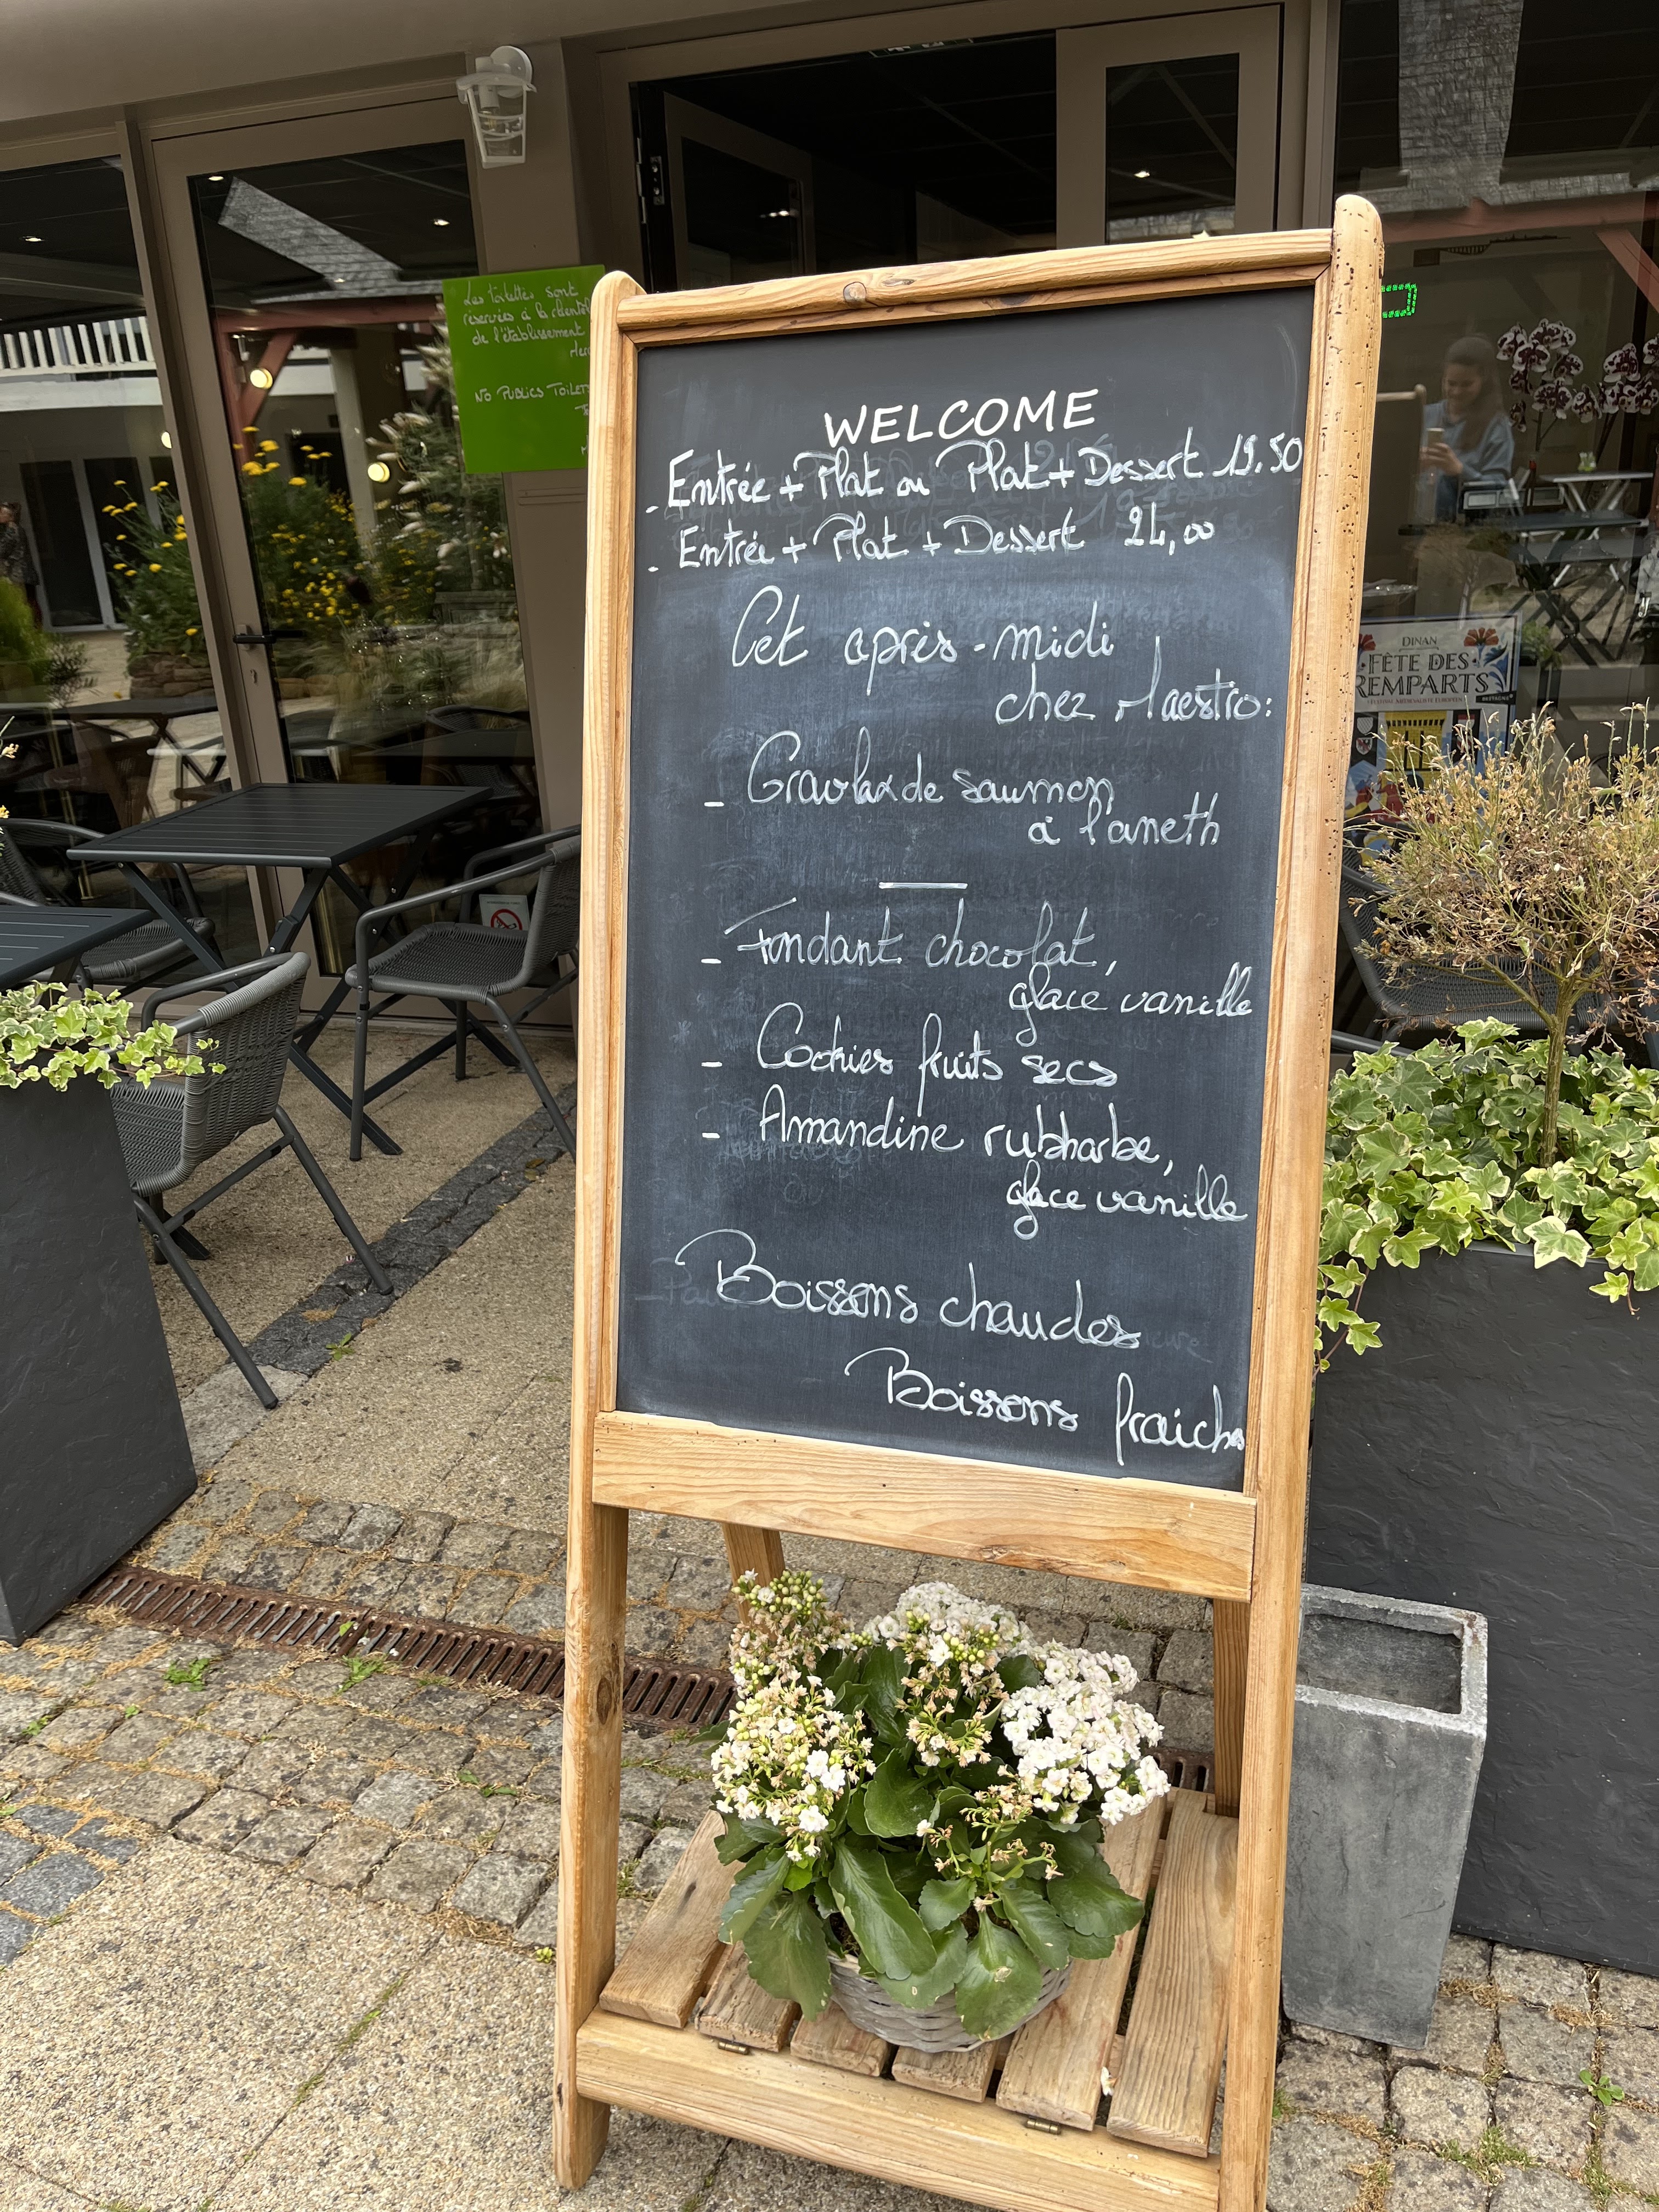 Les toilettes sont
réservées à la clientèl
de l'établissement
Merc
NO PUBLICS TOILETS
WELCOME
- Entrée + Plat ou Plat + Dessert 19.50
- Entrée + Plat + Dessert 24,00
Cet après-midi
chez Maestro:
- Gravlax de saumon
à l'aneth
- Fondant chocolat,
glace vanille
- Cookies fruits secs
- Amandine rubharbe,
glace vanille
Boissons chaudes
Boissons fraiches
DINAN
FÊTE DES
REMPARTS
BRETAGNE